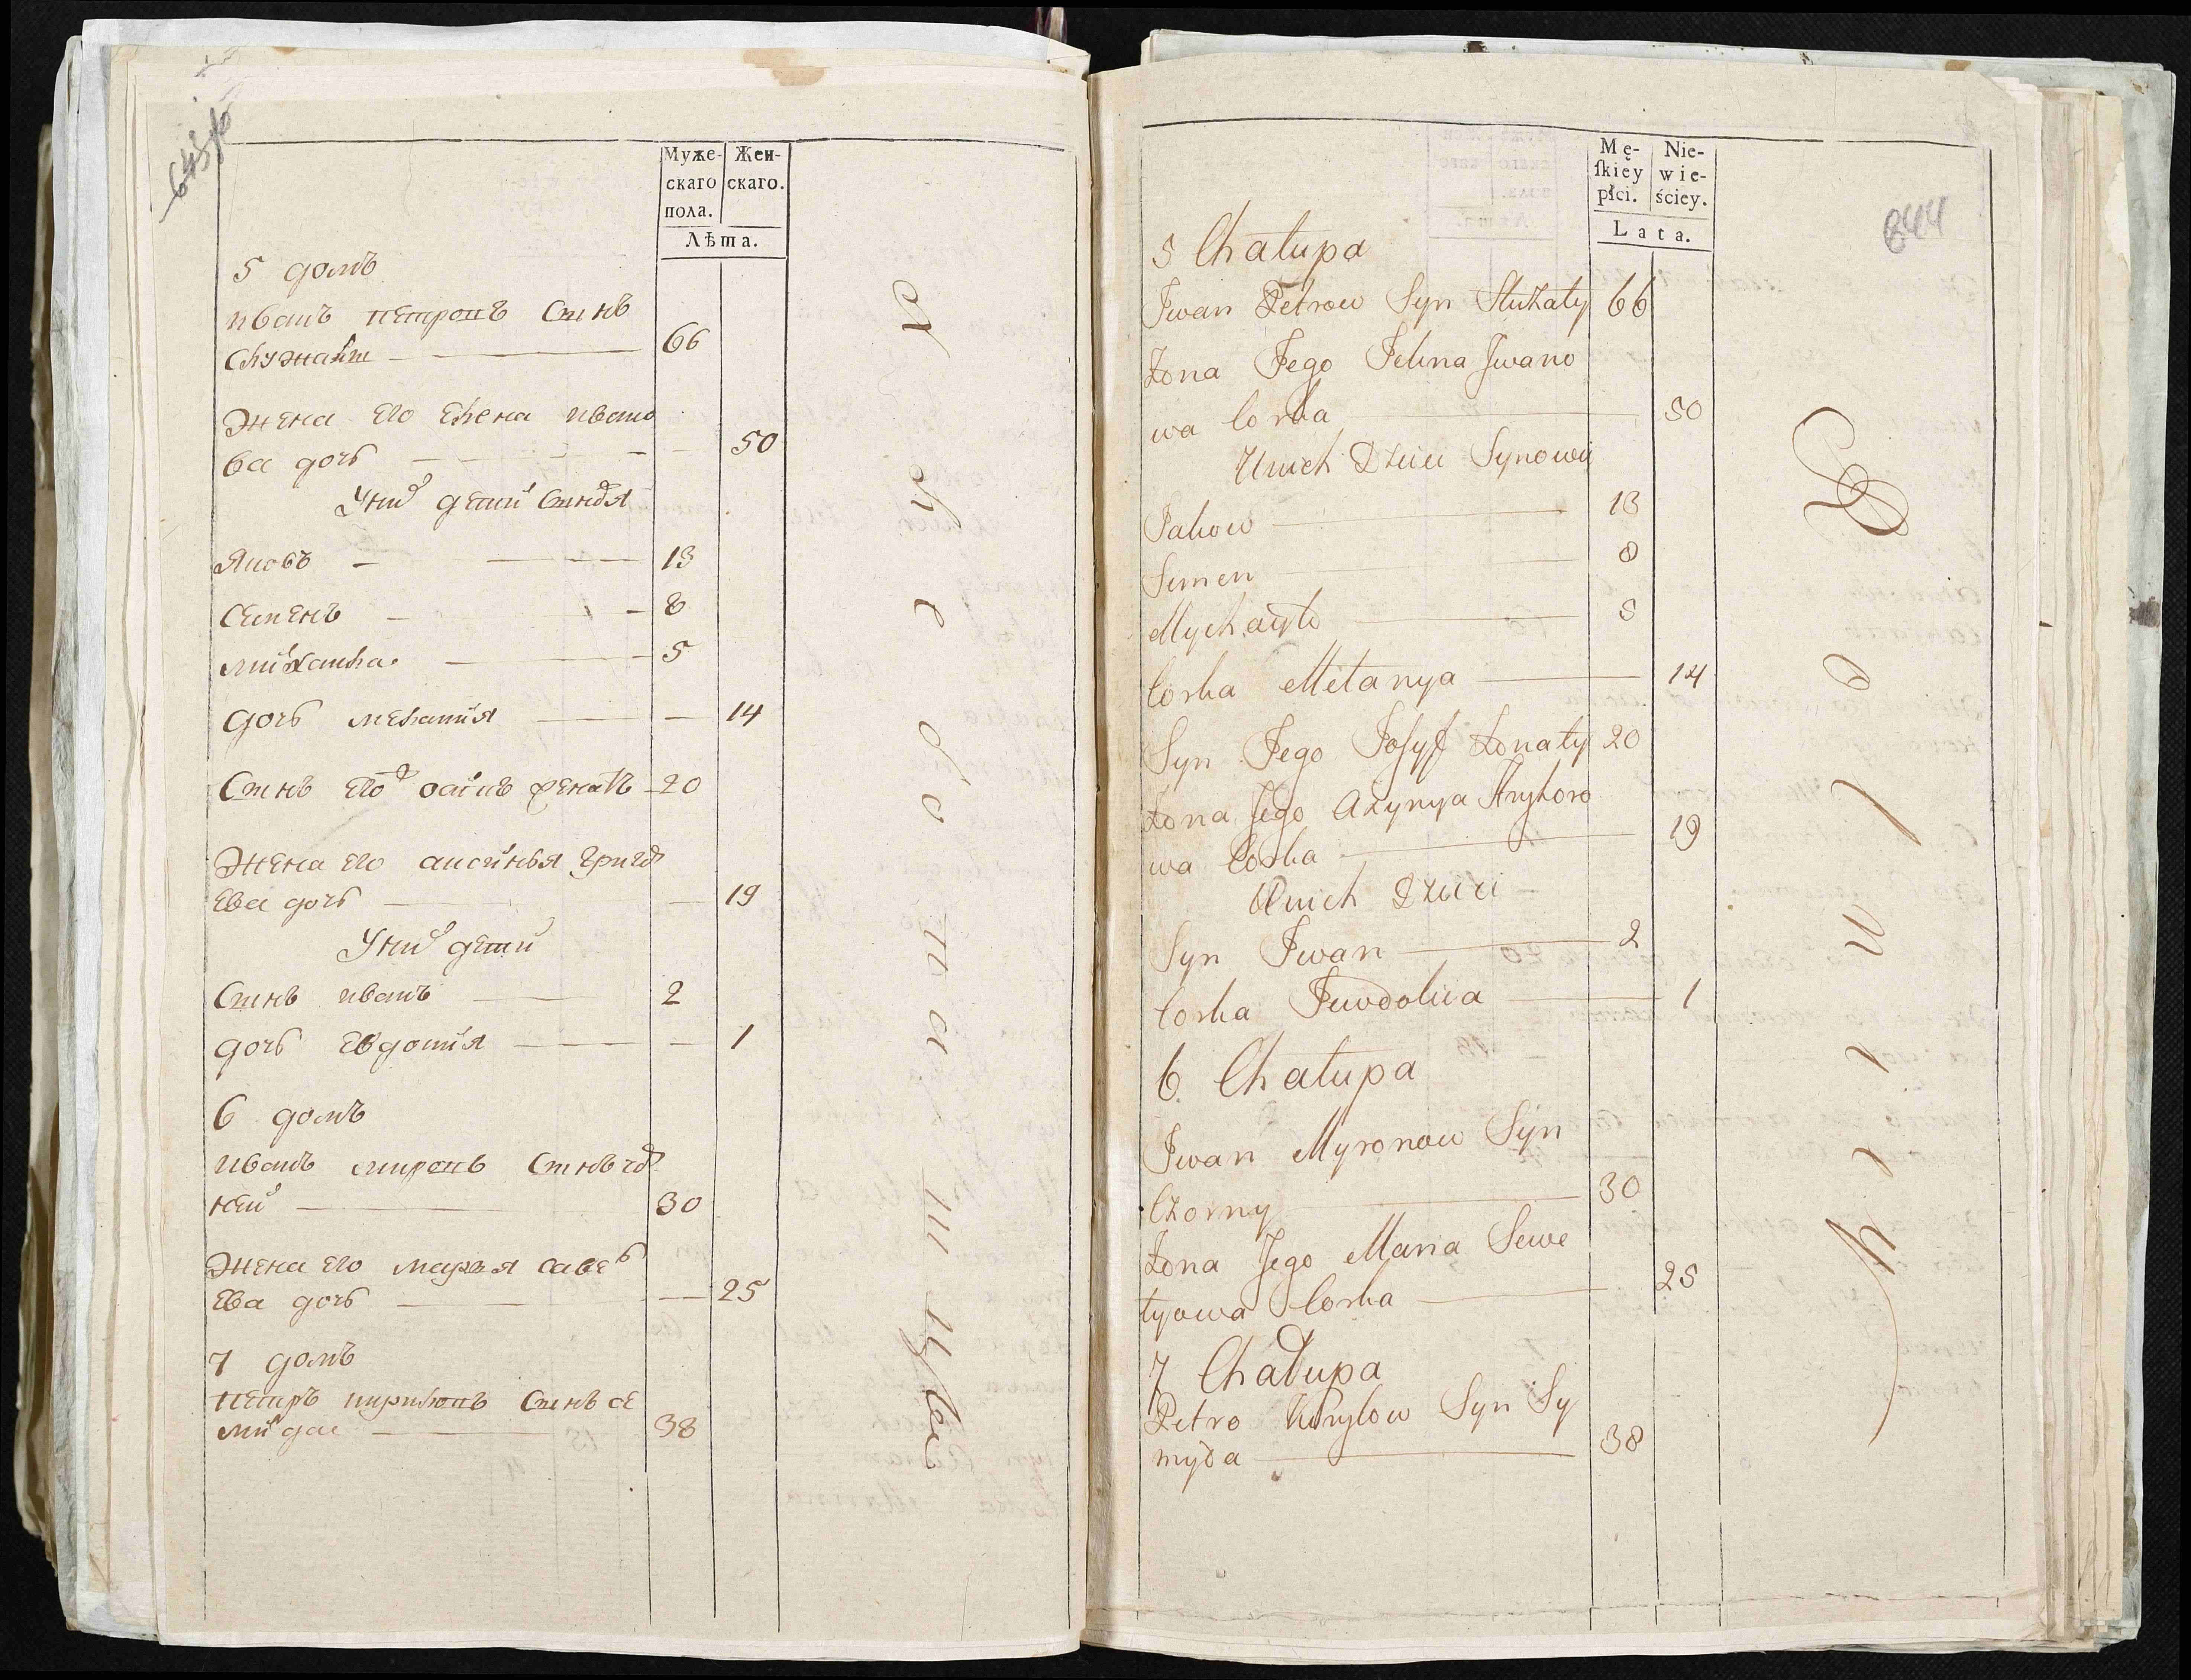 643
Муже- Жен-
скаго скаго.
пола.
Лѣта.
5 домъ
иванъ петровъ Синъ
Служати 66
Жена его Елена ивано
ва дочь 50
У них дети Синовя
Яковъ 13
Семенъ 8
михаила 5
дочь мелания 14
Синъ его осипъ женатъ 20
Жена его аксинья григор
ева дочь 19
У них дети
Синъ иванъ 2
дочь Евдокия 1
6 домъ
иванъ миронъ Синъ чор
ней 30
Жена его марья савель
ева дочь 25
7 домъ
петръ кириловъ Синъ се
мида 38
844
Mę- Nie-
ſkiey wie-
płci. ściey.
Lata.
5 Chałupa
Jwan Petrow Syn Służaty 66
Żona Jego Jelena Jwano
wa Corka 50
U nich Dzieci Synowie
Jakow 13
Semen 8
Mychayło 5
Corka Mełanya 14
Syn Jego Josyf Żonaty 20
Żona Jego Axynya Hryhoro
wa Corka 19
U nich Dzieci
Syn Jwan 2
Corka Jewdokia 1
6. Chałupa
Jwan Myronow Syn
Czorny 30
Żona Jego Maria Sawe
lyowa Corka 25
7 Chałupa
Petro Kiryłow Syn Sy
myda 38